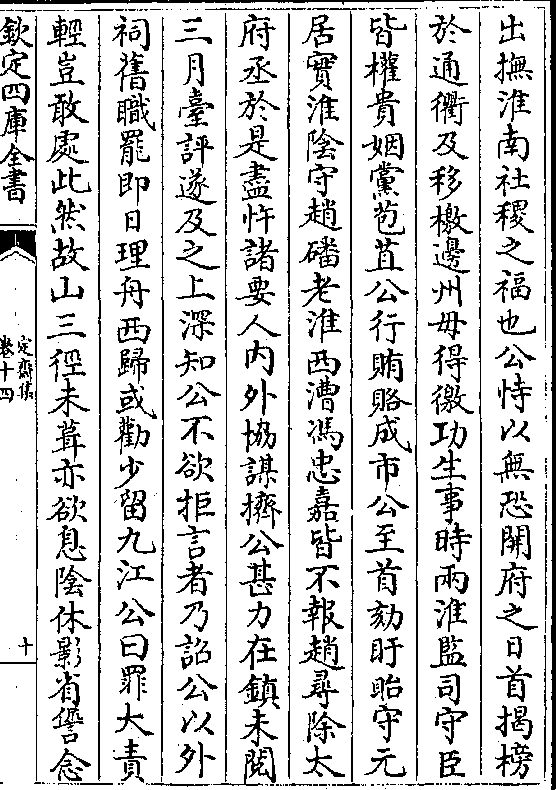 出撫淮南社稷之福也公恃以無恐開府之日首揭榜
於通衢及移檄邊州毋得徼功生事時兩淮監司守臣
皆權貴姻黨苞苴公行賄賂成市公至首劾盱眙守元
居實淮陰守趙磻老淮西漕馮忠嘉皆不報趙尋除太
府丞於是盡忤諸要人内外協謀擠公甚力在鎮未閱
三月臺評遂及之上深知公不欲拒言者乃詔公以外
祠舊職罷即日理舟西歸或勸少留九江公曰罪大責
輕豈敢處此然故山三徑未葺亦欲息陰休影省愆念
欽定四庫全書
定齋集
卷十四
十